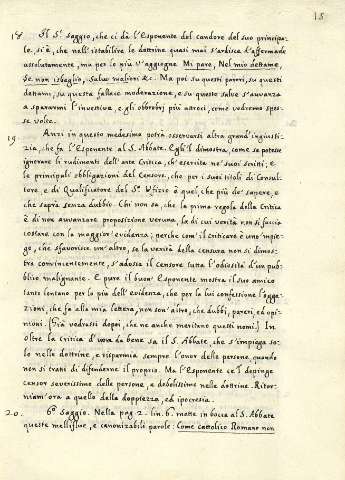 15
18. Il 5.º saggio, che ci dà l'Esponente del candore del suo principa-
le, si è, che nell'istabilire le dottrine quasi mai s'ardisce d'affermarle
assolutamente, ma per lo più v'aggiugne Mi pare, Nel mio dettame,
Se non isbaglio, Salvo meliori &c. Ma poi su questi pareri, su questi
dettami, su questa fallace moderazione, e su queste salve s'avvanza
a spararmi l'invettive, e gli obbrobrj più atroci, come vedremo spes-
se volte.
19. Anzi in questo medesimo potrà osservarsi altra grand'ingiusti-
zia, che fa l'Esponente al S. Abbate. Egli'l dimostra, come se potesse
ignorare li rudimenti dell'arte Critica, ch'esercita ne' suoi scritti, e
le principali obbligazioni del Censore, che per i suoi titoli di Consul-
tore, e di Qualificatore del S.º Ufizio è quel, che più dee sapere, e
che saprà senza dubbio. Chi non sa, che la prima regola della Critica
è di non avvanzare proposizione veruna, la di cui verità non si faccia
costare con la maggior' evidenza; perche com'il criticare è uno impie-
go, che sfavorisce un'altro, se la verità della censura non si dimos-
tra convincentemente, s'adossa il censore tutta l'odiosità d'un pub-
blico malignante. E pure il buon' Esponente mostra il suo amico
tanto lontano per lo più dell'evidenza, che per la lui confessione l'ogge-
zioni, che fa alla mia lettera, non son'altro, che dubbi, pareri, ed opi-
nioni. [Già vedrassi dopoi, che ne anche meritano questi nomi.] In
oltre la Critica d'uom da bene sa il S. Abbate, che s'impiega so-
lo nelle dottrine, e risparmia sempre l'onor delle persone, quando
non si tratti di difenderne il proprio. Ma l'Esponente ce'l dipinge
censor severissimo delle persone, e debolissimo nelle dottrine. Ritor-
niam'ora a quello della doppiezza, ed ipocresia.
20. 6º Saggio. Nella pag. 2. lin. 6.ª mette in bocca al S. Abbate
queste melliflue, e canonizabili parole: Come cattolico Romano non